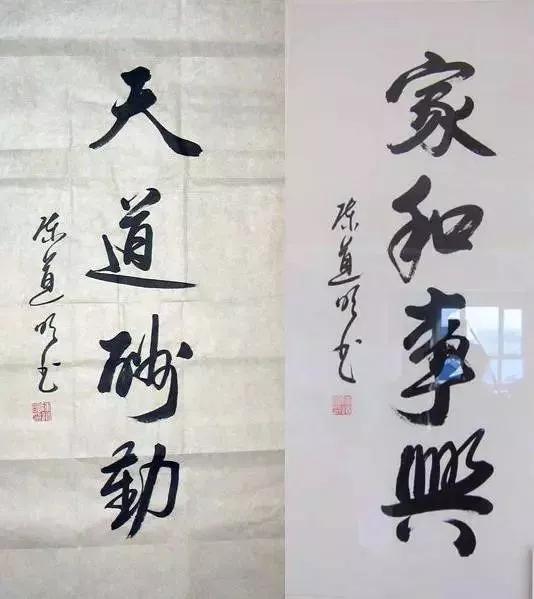 家和事興
陈道明书
天道酬勤
陈道明书